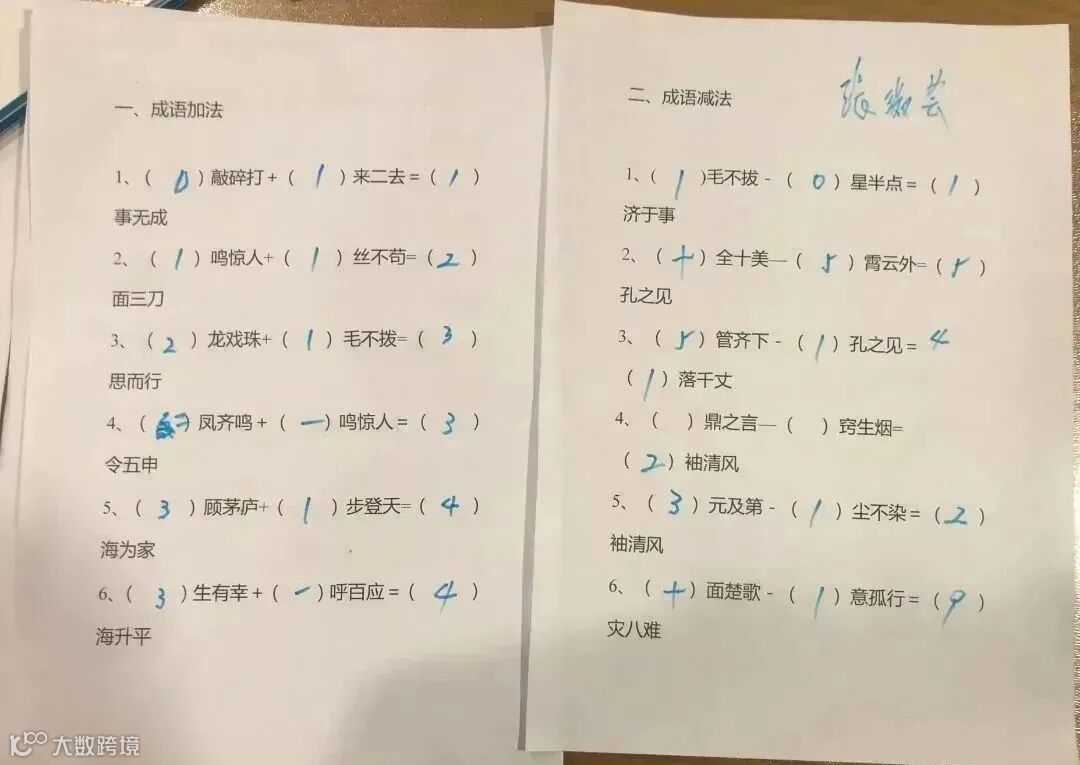 一、成语加法
1、（0）敲碎打+（1）来二去=（1）
事无成
2、（1）鸣惊人+（1）丝不苟=（2）
面三刀
3、（2）龙戏珠+（1）毛不拨=（3）
思而行
4、（ ）凤齐鸣+（一）鸣惊人=（3）
令五申
5、（3）顾茅庐+（1）步登天=（4）
海为家
6、（3）生有幸+（一）呼百应=（4）
海升平
二、成语减法
1、（1）毛不拔-（0）星半点=（1）
济于事
2、（十）全十美—（5）霄云外=（5）
孔之见
3、（5）管齐下-（1）孔之见=4
（1）落千丈
4、（ ）鼎之言—（ ）窍生烟=
（2）袖清风
5、（3）元及第-（1）尘不染=（2）
袖清风
6、（十）面楚歌-（1）意孤行=（9）
灾八难
大数跨境